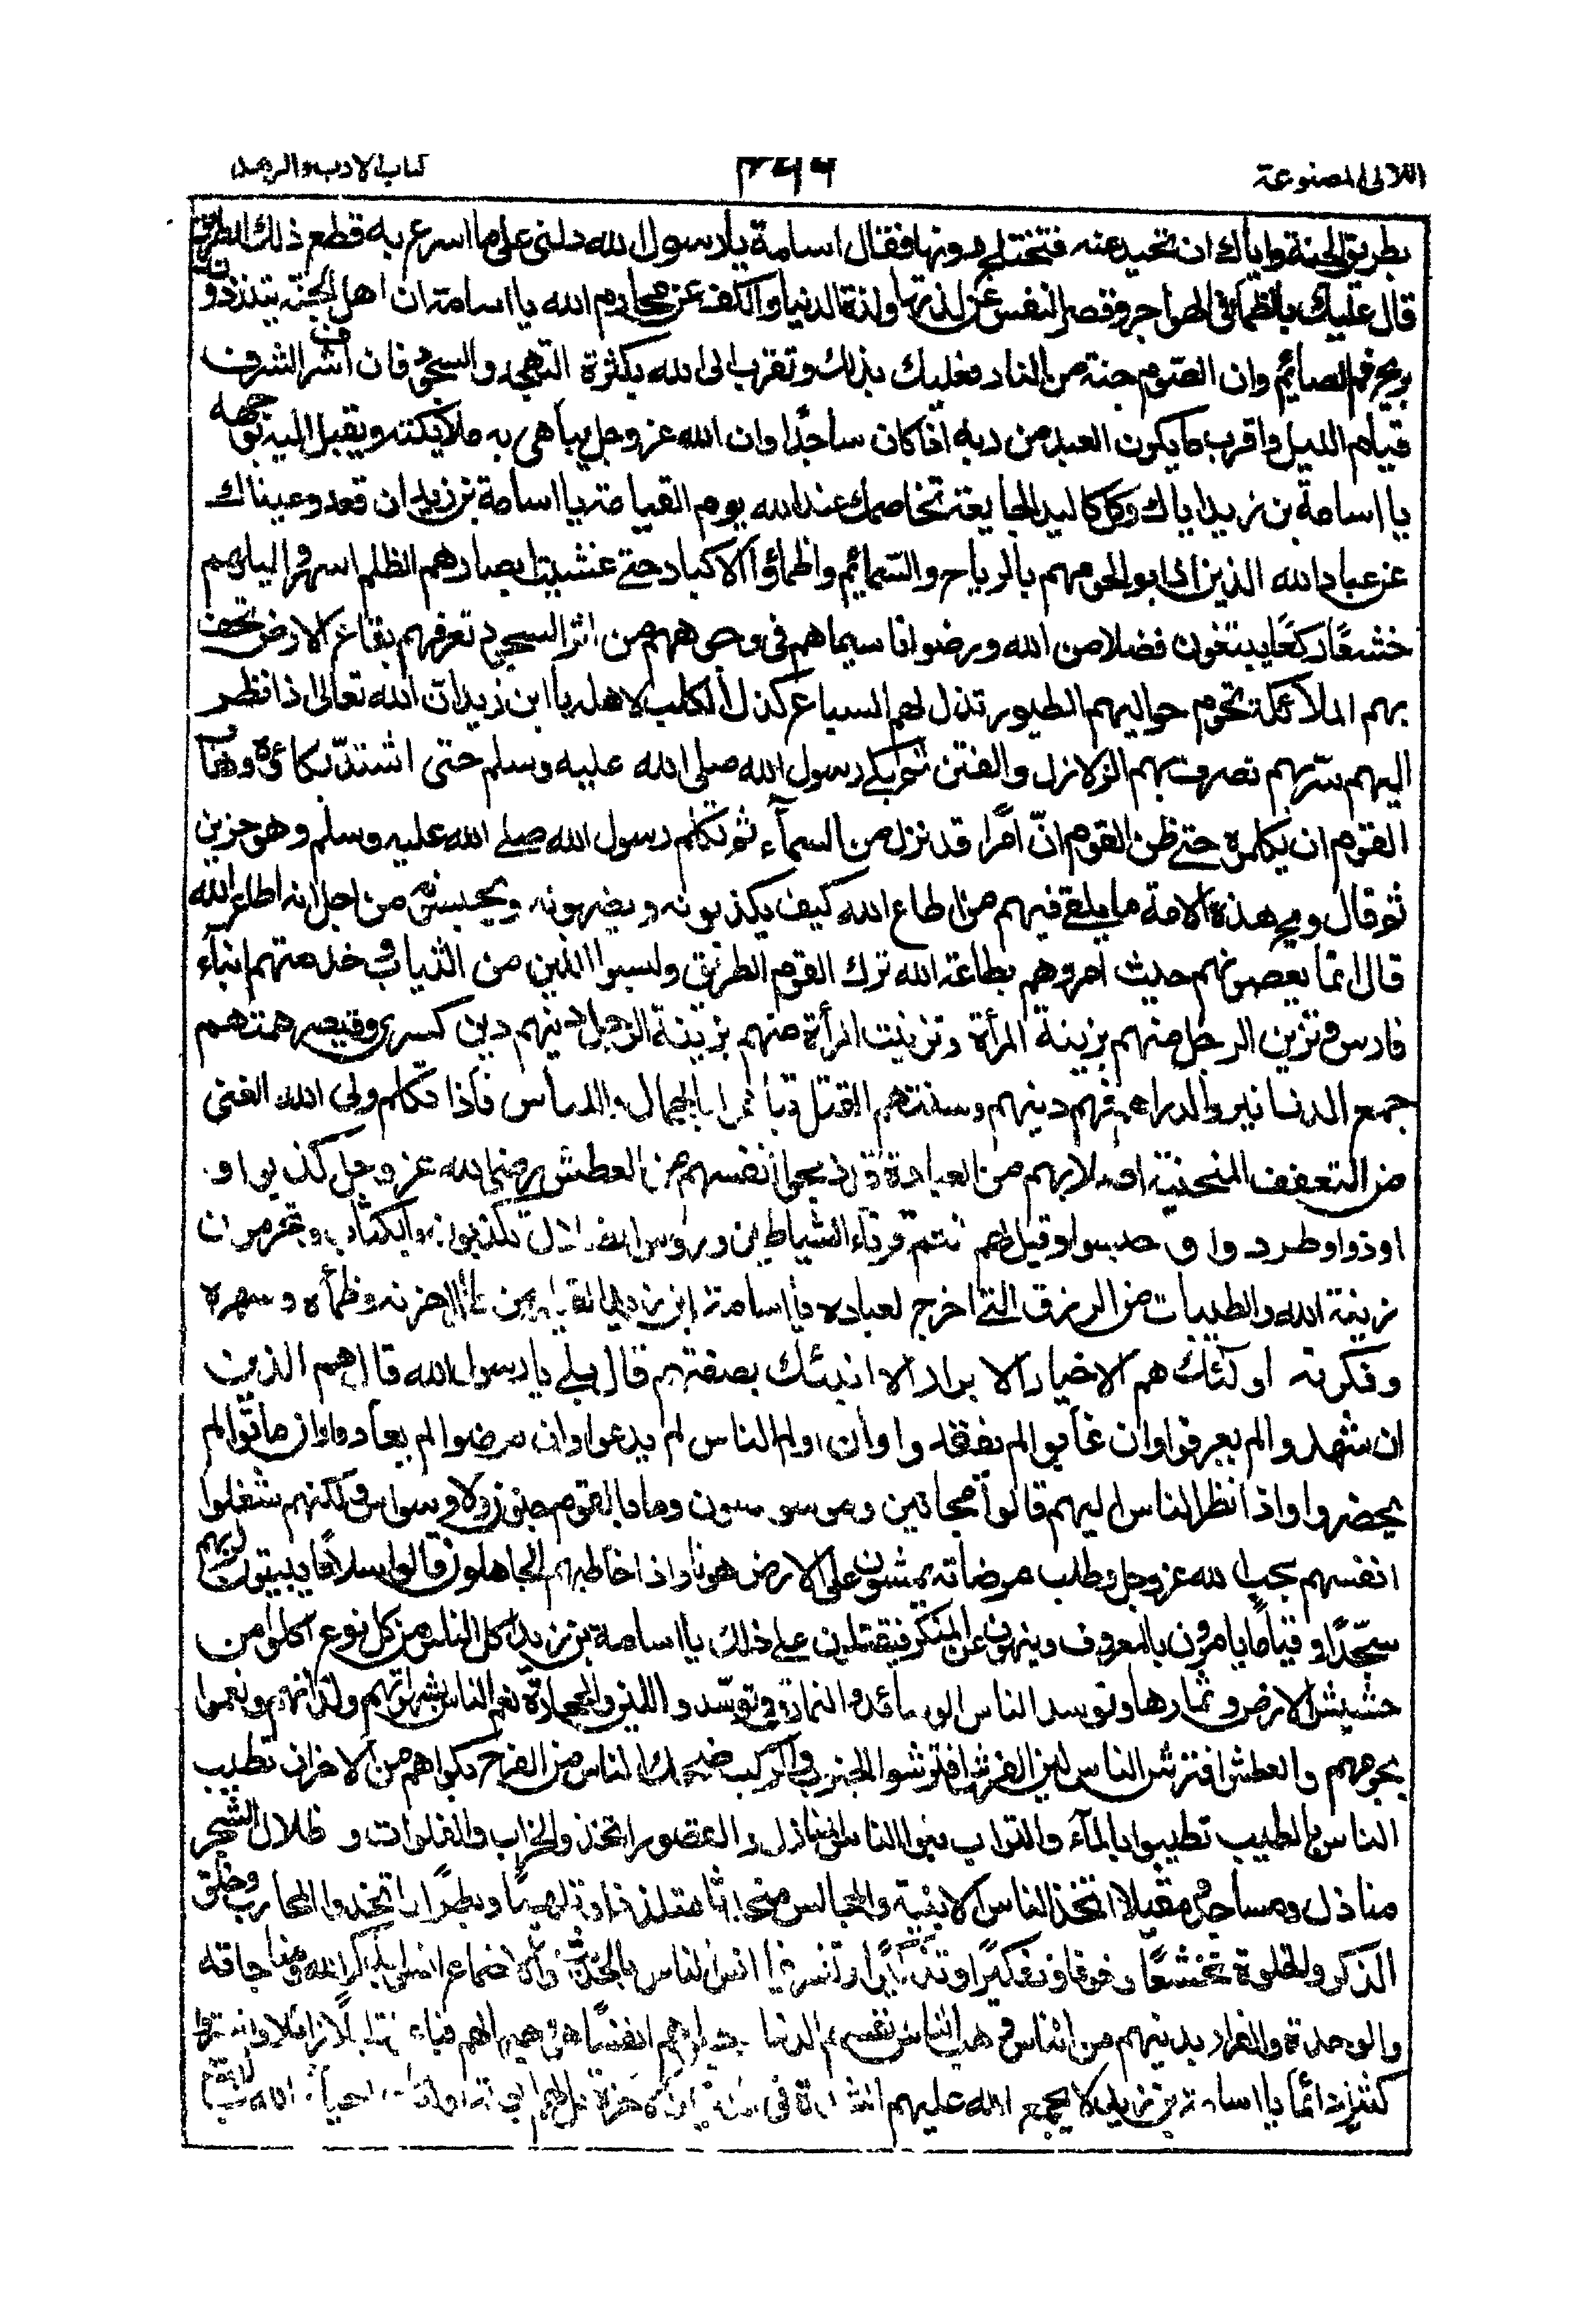 اللآلى المصنوعة
كتاب الادب والزهد
بطريق الجنة واياك ان تحيد عنه فتختلج دونها فقال اسامة يا رسول الله دلنى على ما اسرع به قطع ذلك الطريق
قال عليك بالظمأ فى الهواجر وقصر النفس عن لذتها ولذة الدنيا والكف عن محارم الله يا اسامة ان اهل الجنة يتلذذون
بريح فم الصائم وان الصوم جنة من النار فعليك بذلك وتقرب الى الله بكثرة التهجد والسجود فان اشرف الشرف
قيام الليل واقرب ما يكون العبد من ربه اذا كان ساجدًا وان الله عز وجل يباهى به ملائكته ويقبل اليه بوجهه
يا اسامة بن زيد اياك وكل كبد جايعة تخاصمك عند الله يوم القيامة يا اسامة بن زيد ان تعد وعيناك
عن عباد الله الذين اذابوا لحومهم بالرياح والسمائم واظمأوا الاكباد حتے غشيت ابصارهم الظلم اسهروا ليلهم
خشعًا ركعًا يبتغون فضلا من الله ورضوانا سيماهم فى وجوههم من اثر السجود تعرفهم بقاع الارض تحف
بهم الملائكة تحوم حواليهم الطيور تذل لهم السباع كذل الكلب لاهله يا ابن زيد ان الله تعالى اذا نظر
اليهم سرّ بهم تصرف بهم الزلازل والفتن ثم بكے رسول الله صلى الله عليه وسلم حتى اشتدّ بكاؤه وهاب
القوم ان يكلموه حتے ظن القوم انّ امرًا قد نزل من السمآء ثم تكلم رسول الله صلے الله عليه وسلم وهو حزين
ثم قال ويح هذه الامة ما يلقے فيهم من اطاع الله كيف يكذبونه ويضربونه ويحبسونه من اجل انه اطاع الله
قال انما يعصونهم حيث امروهم بطاعة الله ترك القوم الطريق ولبسوا اللين من الثياب وخدمتهم ابنآء
فارس وتزين الرجل منهم بزينة المرأة وتزينت المرأة منهم بزينة الرجل دينهم دين كسرى وقيصر همتهم
جمع الدنانير والدراهم فهم دينهم وسنتهم القتل تباهوا بالجمال واللباس فاذا تكلم ولى الله الغنى
من التعفف المنحنية اصلابهم من العبادة قد ذبحوا انفسهم من العطش رضى الله عز وجل كذبوا و
اوذوا وطردوا و حبسوا وقيل لهم انتم قرناء الشياطين ورؤس الضلال تكذبون بالكتاب وتحرمون
زينة الله والطيبات من الرزق التے اخرج لعباده يا اسامة ابن زيد من طال حزنه وظمأه وسهره
وفكرته اولئك هم الاخيار الابرار الا انبئك بصفتهم قال بلے يا رسول الله قال هم الذين
ان شهدوا لم يعرفوا وان غابوا لم يفتقدوا وان راهم الناس لم يدعوا وان مرضوا لم يعادوا وان ماتوا لم
يحضروا واذا نظر الناس اليهم قالوا مجانين وموسوسون وما بالقوم جنون ولا وسواس ولكنهم شغلوا
انفسهم بحب الله عز وجل وطلب مرضاته يمشون على الارض هونا واذا خاطبهم الجاهلون قالوا سلاما يبيتون لربهم
سجّدًا وقيامًا يأمرون بالمعروف وينهون عن المنكر فيقتلون على ذلك يا اسامة بن زيد اكل الناس من كل نوع اكلوا من
حشيش الارض وثمارها وتوسد الناس الوسائد والنمارق وتوسّدوا اللبن والحجارة نعم الناس بشهواتهم ولذاتهم ونعموا
بجوعهم والعطش افترش الناس لين الفرش افترشوا الجنوب والركب ضحك الناس من الفرح بكوا هم من الاحزان تطيب
الناس بالطيب تطيبوا بالمآء والتراب بنوا الناس المنازل والقصور اتخذوا الخراب والفلوات و ظلال الشجر
منازل ومساجد ومقيلا اتخذ الناس الاندية والمجالس متحدثا متلذذا وتلهيًا وبطرًا اتخذوا المحاريب وحلق
الذكر والخلوة تخشعًا وخوفا وتفكيرًا وتذكيرًا انس الناس بالحديث والاجتماع انسوا بذكر الله ومناجاته
والوحدة والفرار بدينهم من الناس وهب الناس نفسهم للدنيا
يا اسامة بن زيد لا يجمع الله عليهم الشدة فى الدنيا والآخرة بل لهم